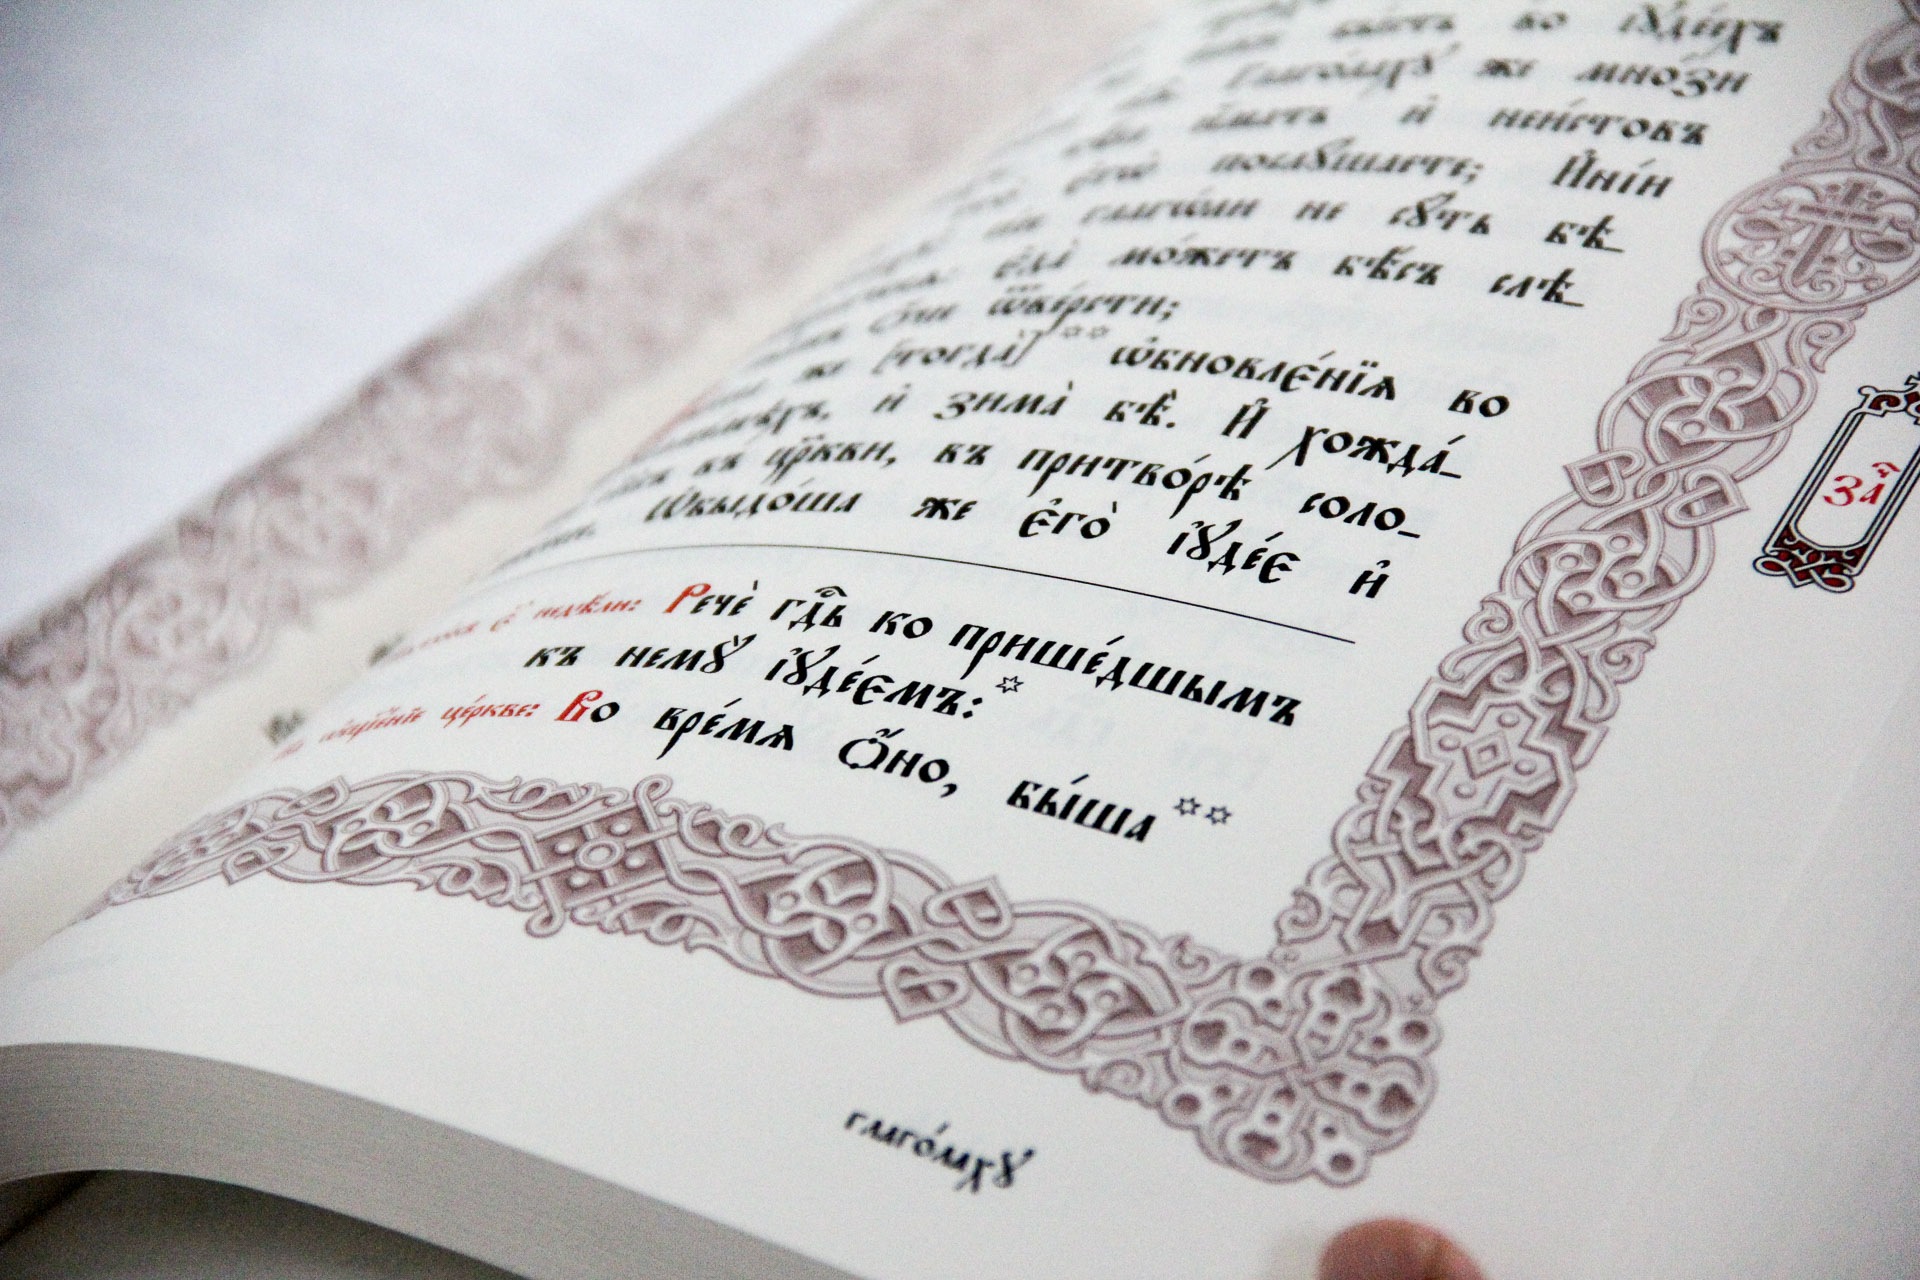 бы́сть во і҆ꙋде́ихъ
Глаго́лахꙋ же мно́зи
и҆́мать и҆ неи́стовъ
є҆гѡ̀ послꙋ́шаете; И҆ні́и
сїѝ глаго́ли не сꙋ́ть бѣ_
є҆да̀ мо́жетъ бѣ́съ слѣ_
ѻ҆́чи ѿве́рсти;
же [тогда̀]** ѡ҆бновлє́нїѧ во
и҆ зима̀ бѣ̀. И҆ хожда́_
въ цр҃кви, въ притво́рѣ соло_
Ѡ҆быдо́ша же є҆го̀ і҆ꙋде́є и҆
недѣ́ли: Речѐ гдⷭ҇ь ко прише́дшымъ
къ немꙋ̀ і҆ꙋде́ємъ:*
це́ркве: Во вре́мѧ ѻ҆́но, бы́ша**
глаго́лахꙋ
за҄